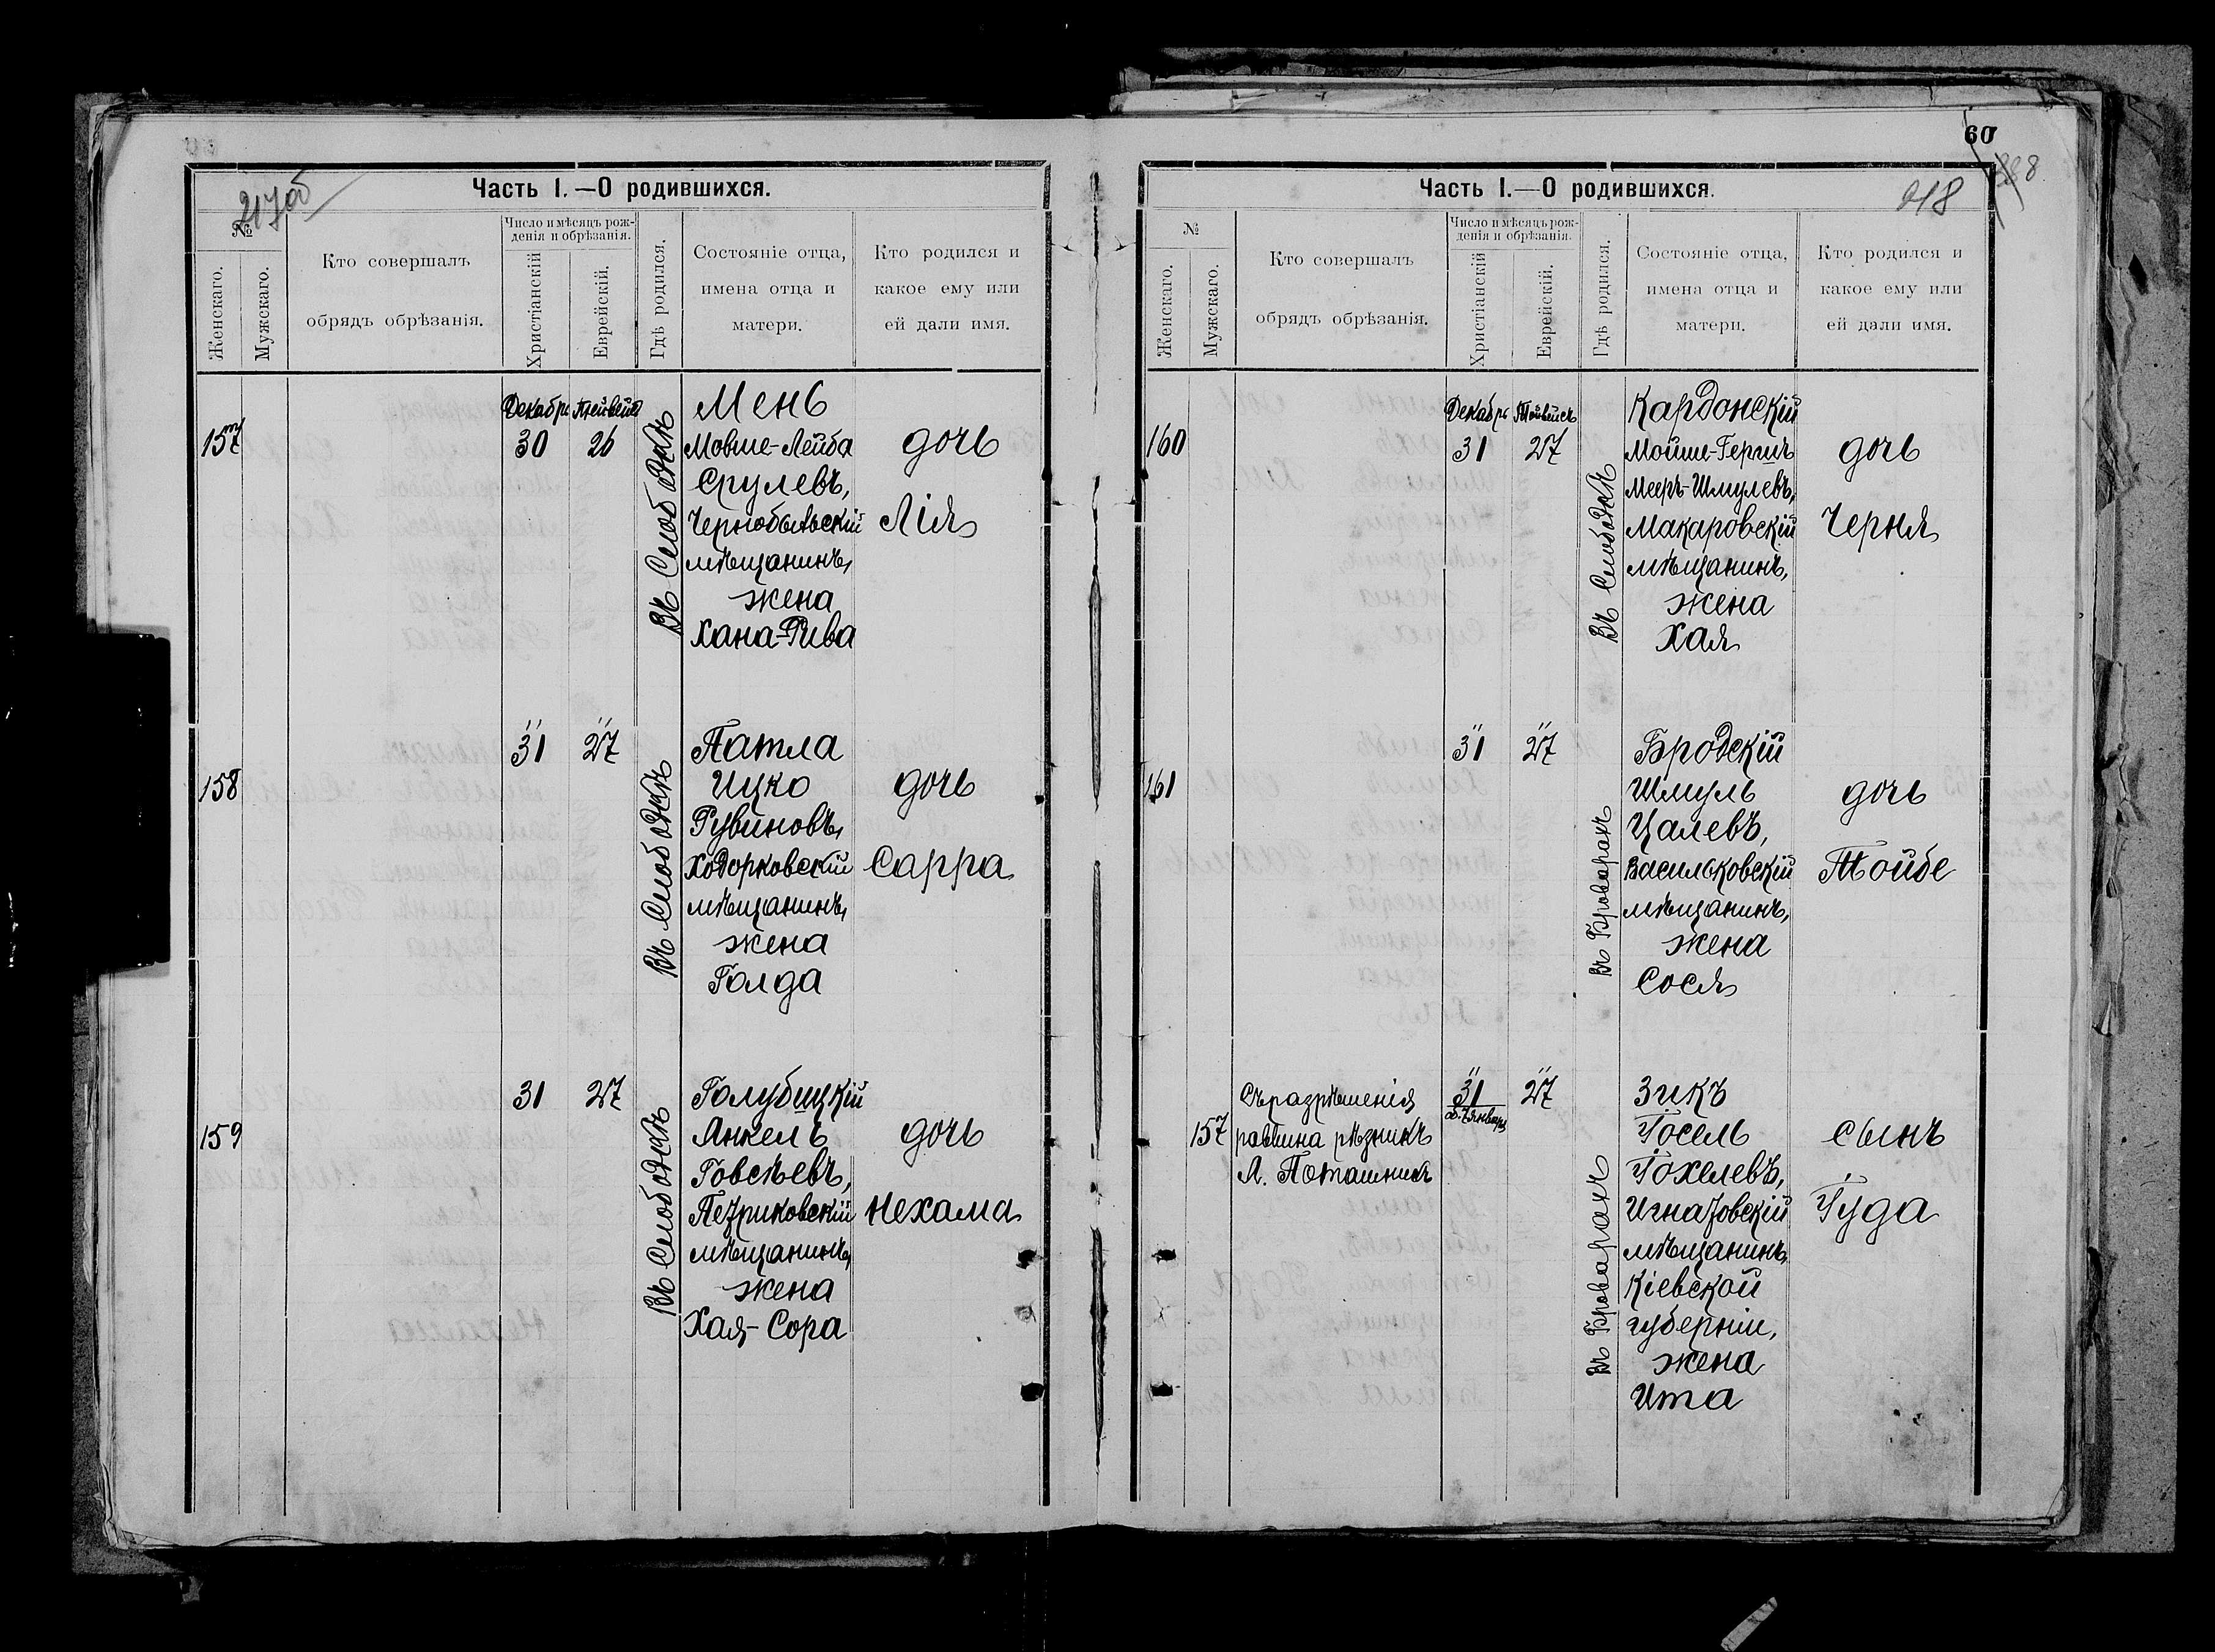 217об
Часть I.—О родившихся.
№
Женскаго.
Мужскаго.
Кто совершалъ
обрядъ обрѣзанія.
Число и мѣсяцъ рож-
денія и обрѣзанія.
Христіанскій
Еврейскій.
Гдѣ родился.
Состояніе отца,
имена отца и
матери.
Кто родился и
какое ему или
ей дали имя.
157
Декабрь
30
26
Въ Слободкѣ
Мень
Мовше-Лейба
Срулевъ,
Чернобыльскій
мѣщанинъ,
жена
Хана-Рива
дочь
Лія
158
31
27
Въ Слободкѣ
Патла
Ицко
Рувиновъ,
Ходорковскій
мѣщанинъ,
жена
Голда
дочь
Сарра
159
31
27
Въ Слободкѣ
Голубицкій
Анкель
Говсѣевъ,
Петриковскій
мѣщанинъ,
жена
Хая-Сора
дочь
Нехама
60
218
Часть I.—О родившихся.
№
Женскаго.
Мужскаго.
Кто совершалъ
обрядъ обрѣзанія.
Число и мѣсяцъ рож-
денія и обрѣзанія.
Христіанскій
Еврейскій.
Гдѣ родился.
Состояніе отца,
имена отца и
матери.
Кто родился и
какое ему или
ей дали имя.
160
Декабрь
31
27
Въ Слободкѣ
Кардонскій
Мойше-Гершъ
Мееръ-Шмулевъ,
Макаровскій
мѣщанинъ,
жена
Хая
дочь
Черня
161
31
27
Въ Броварахъ
Бродскій
Шмуль
Цалевъ,
Васильковскій
мѣщанинъ,
жена
Сося
дочь
Тойбе
157
Съ разрѣшенія
раввина рѣзникъ
Л. Поташникъ
31
об. 7 январь
27
Въ Броварахъ
Зикъ
Іосель
Іохелевъ,
Игнатовскій
мѣщанинъ,
Кіевской
губерніи,
жена
Ита
сынъ
Іуда